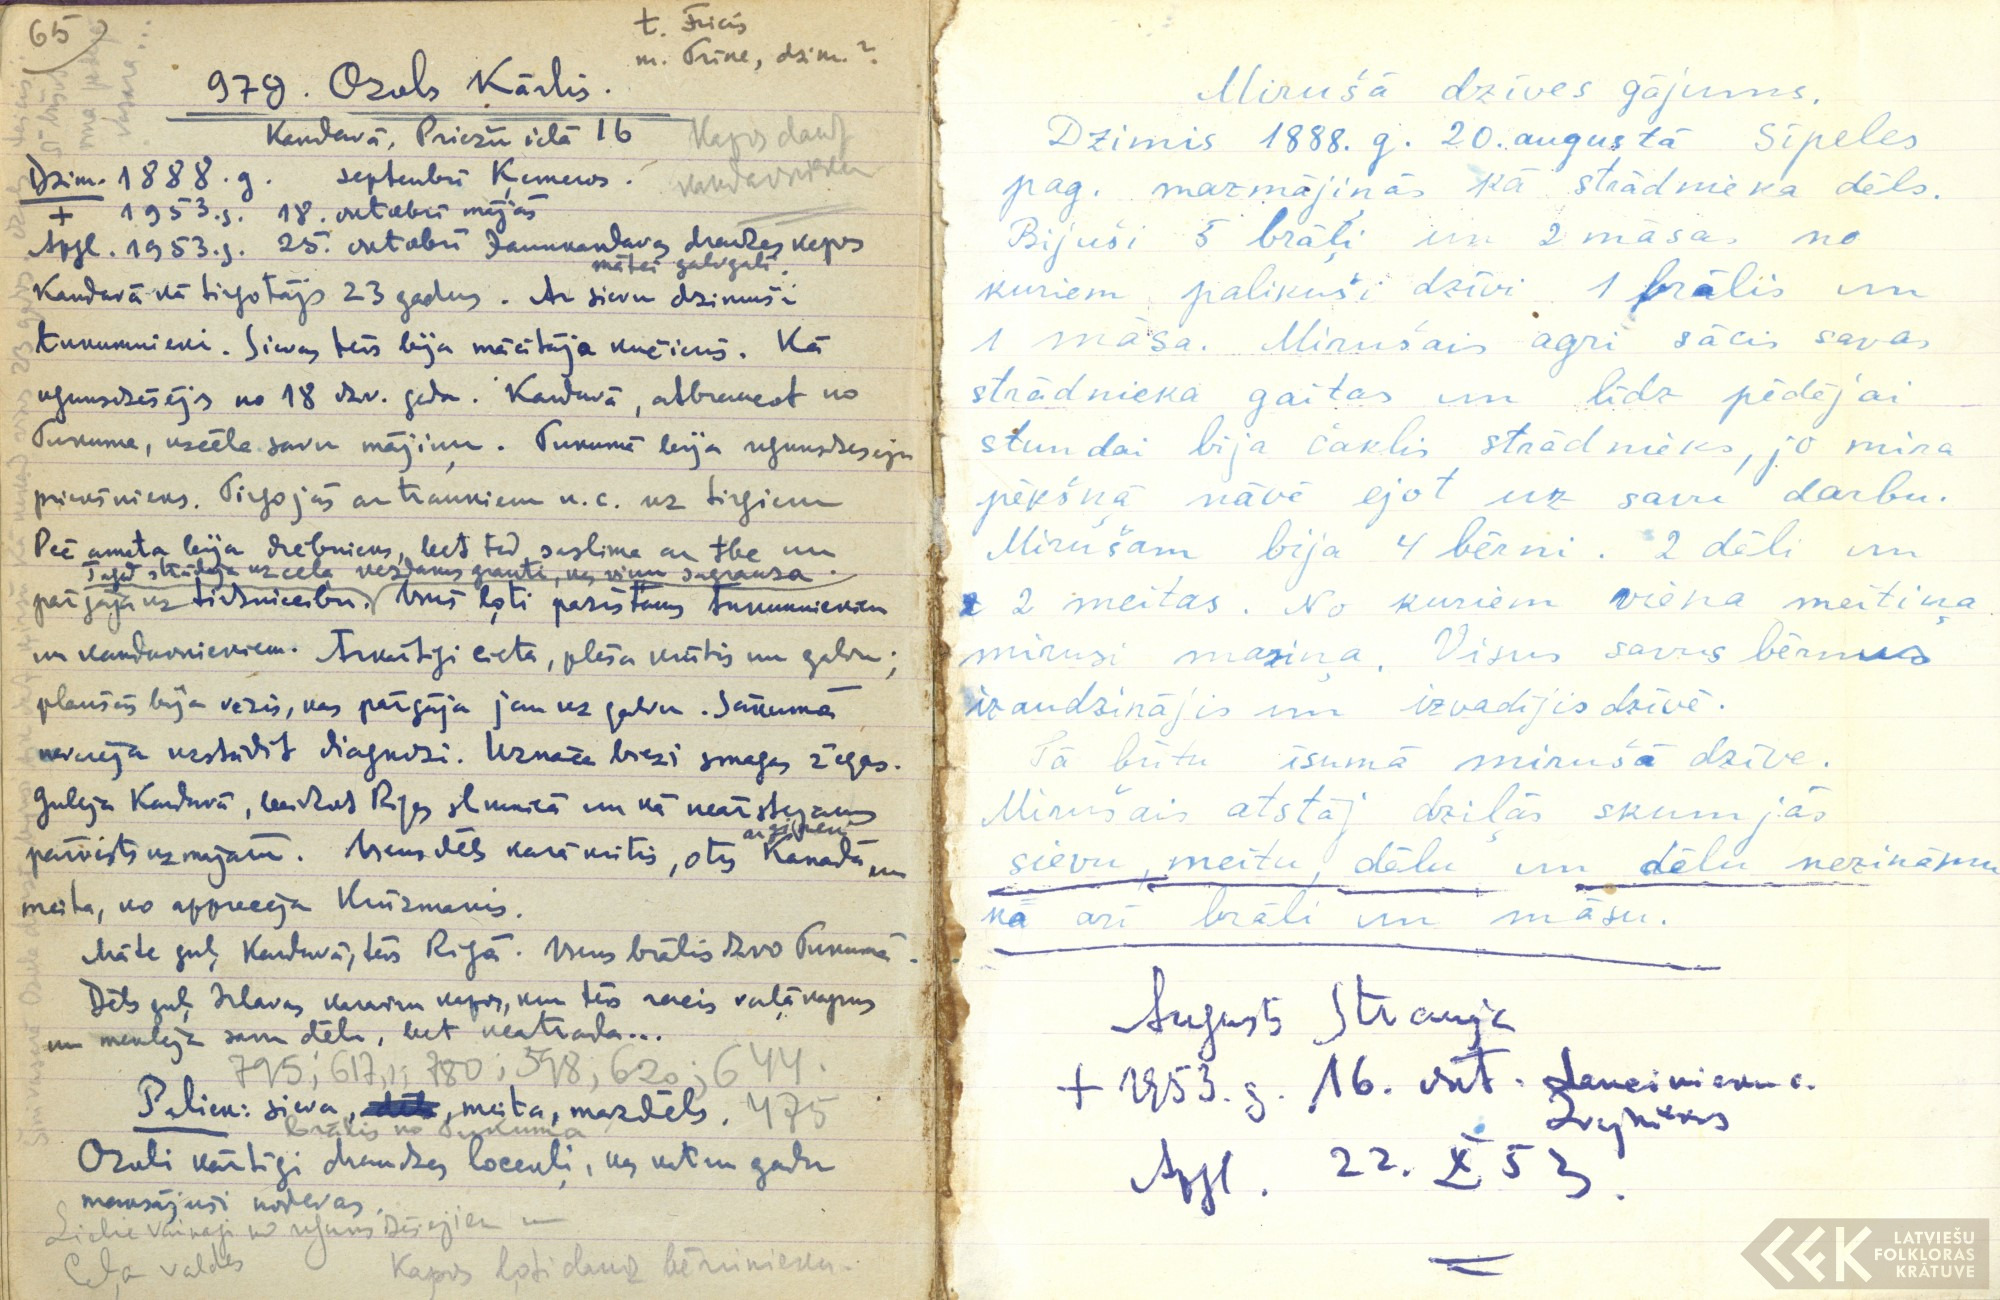 65
t. Fricis
m. Trīne, dzim. ?
979. Ozols Kārlis.
Kandavā, Priežu ielā 16
Kapos daudz
kandavnieku
Dzim. 1888. g. septembrī Ķemeros.
+ 1953. g. 18. oktobrī mājās
Apgl. 1953. g. 25. oktobrī Jaunkandavas draudzes kapos
mātei galvgalī.
Kandavā kā tirgotājs 23 gadus. Ar sievu dzimuši
tukumnieki. Sievas tēvs bija mācītāja kučieris. Kā
ugunsdzēsējs no 18 dzv. gada. Kandavā, atbraucot no
Tukuma, uzcēla savu mājiņu. Tukumā bija ugunsdzēsēju
priekšnieks. Tirgojās ar traukiem u. c. uz tirgiem
Pēc amata bija drēbnieks, bet tad saslima ar tbc un
Tagad strādāja uz ceļa grants, kas viņu sagrauza.
pārgāja uz tirdzniecību. Visā ļoti pazīstams tukumniekiem
un kandavniekiem. Ārkārtīgi cieta, plēsa krūtis un galvu;
plaušās bija vēzis, kas pārgāja jau uz galvu. Sākumā
nevarēja uzstādīt diagnozi. Uznāca bieži smagas lēkmes.
Gulēja Kandavā, beidzot Rīgas slimnīcā un kā neārstējams
pārvests uz mājām. Viens dēls karā kritis, otrs Kanadā, un
ar ģimeni
meita, ko apprecēja Krūzmanis.
Māte guļ Kandavā, tēvs Rīgā. Viens brālis dzīvo Tukumā.
Dēls guļ Irlavas karavīru kapos, kur tēvs racis vaļā kapus
un meklēja savu dēlu, bet neatrada...
795; 617,1; 780; 598; 620; 644.
Paliek: sieva, meita, mazdēls. 475
brālis no Tukuma
Ozoli kārtīgi draudzes locekļi, kas katru gadu
maksājuši nodevas.
Lielie vainagi no ugunsdzēsējiem un
Ceļa valdes
Kapos ļoti daudz bērinieku.
Mirušā dzīves gājums.
Dzimis 1888. g. 20. augustā Sīpeles
pag. mazmājiņās kā strādnieka dēls.
Bijuši 5 brāļi un 2 māsas no
kuriem palikuši dzīvi 1 brālis un
1 māsa. Mirušais agri sācis savas
strādnieka gaitas un līdz pēdējai
stundai bija čaklis strādnieks, jo mira
pēkšņā nāvē ejot uz savu darbu.
Mirušam bija 4 bērni. 2 dēli un
2 meitas. No kuriem viena meitiņa
mirusi maziņa. Visus savus bērnus
izaudzinājis un izvadījis dzīvē.
Tā būtu īsumā mirušā dzīve.
Mirušais atstāj dziļās skumjās
sievu, meitu, dēlu un dēlu nezināmu
kā arī brāli un māsu.
Augusts Strauja
+ 1953. g. 16. okt. Laucinieku c.
Zvejniekos
Apgl. 22. X 53.
LATVIEŠU
FOLKLORAS
KRĀTUVE